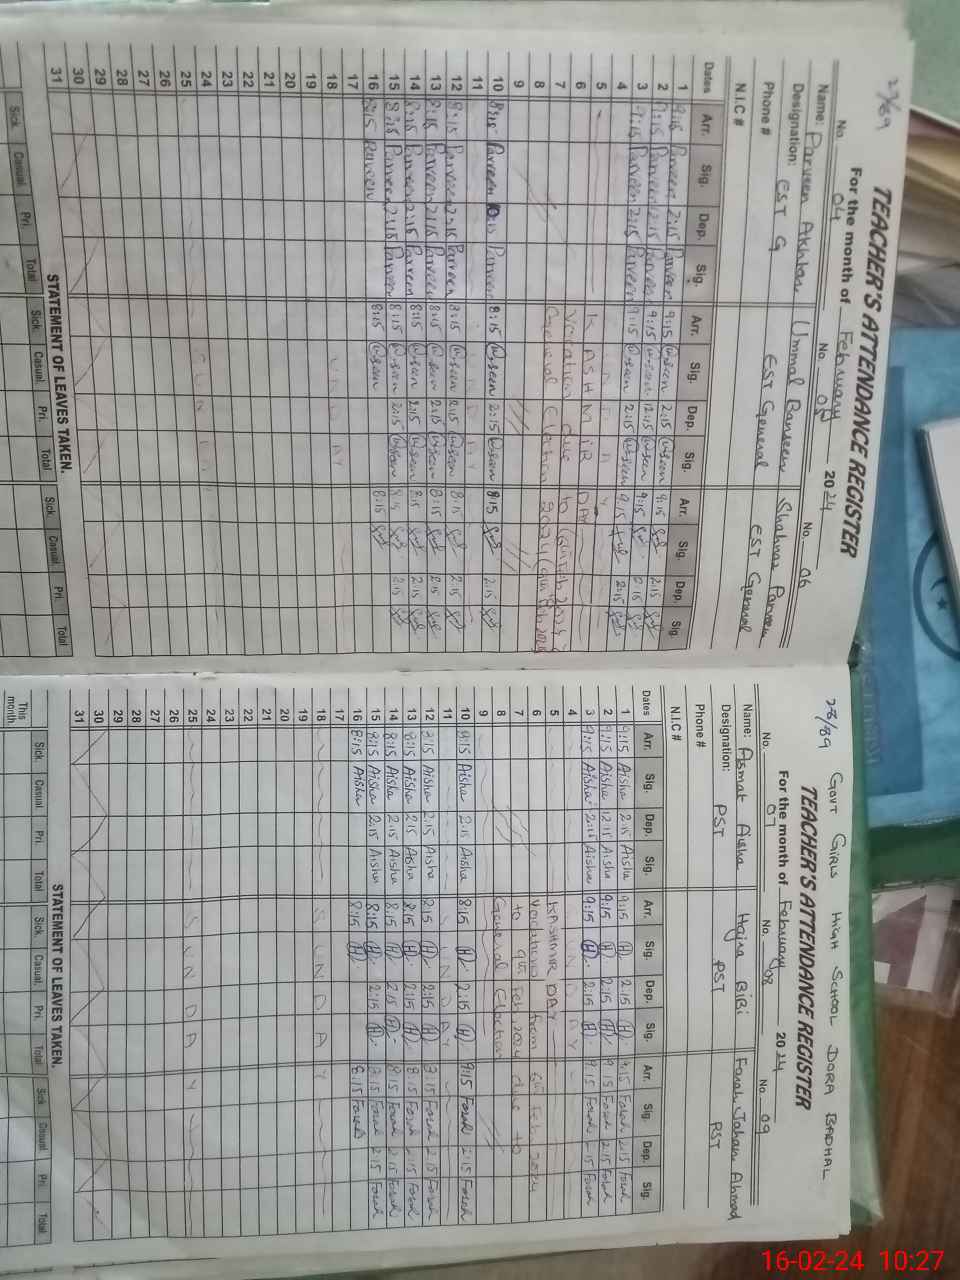 27/89
TEACHER'S ATTENDANCE REGISTER
For the month of February 2024
No. 04 No. 05 No. 06
Name: Parveen Akhtar Ummal Banseen Shahnaz Parveen
Designation: EST G EST General EST General
Phone #
N.I.C #
Dates Arr. Sig. Dep. Sig. Arr. Sig. Dep. Sig. Arr. Sig. Dep. Sig.
1 9:15 Parveen 2:15 Parveen 9:15 2:15 9:15 2:15
2 9:15 Parveen 12:15 Parveen 9:15 12:15 9:15
3 9:15 Parveen 2:15 Parveen 9:15 2:15 9:15 2:15
4
5 KASHMIR DAY
6 Vacation due to
7 General Election 2024
8
9
10 8:15 Parveen Parveen 8:15 2:15 8:15 2:15
11
12 8:15 Parveen 2:15 Parveen 8:15 2:15 8:15 2:15
13 8:15 Parveen 2:15 Parveen 8:15 2:15 8:15 2:15
14 8:15 Parveen 2:15 Parveen 8:15 2:15 8:15 2:15
15 8:15 Parveen 2:15 Parveen 8:15 2:15 8:15 2:15
16 8:15 Parveen 8:15 8:15
17
18 SUNDAY
19
20
21
22
23
24
25 SUNDAY
26
27
28
29
30
31
STATEMENT OF LEAVES TAKEN.
Sick. Casual. Pri. Total Sick. Casual. Pri. Total Sick. Casual. Pri. Total
28/89 GOVT GIRLS HIGH SCHOOL DORA BADHAL
TEACHER'S ATTENDANCE REGISTER
For the month of February 2024
No. 07 No. 08 No. 09
Name: Asmat Aisha Hajra BiBi Farah Jahan Ahmad
Designation: PST PST PST
Phone #
N.I.C #
Dates Arr. Sig. Dep. Sig. Arr. Sig. Dep. Sig. Arr. Sig. Dep. Sig.
1 9:15 Aisha 2:15 Aisha 9:15 H 2:15 H 9:15 Farah 2:15 Farah
2 9:15 Aisha 12:15 Aisha 9:15 H 2:15 H 9:15 Farah 2:15 Farah
3 9:15 Aisha 2:15 Aisha 9:15 H 2:15 H 9:15 Farah 2:15 Farah
4 SUNDAY
5 KASHMIR DAY
6 Vacational from 6th Feb, 2024
7 to 9th Feb, 2024 due to
8 General Election
9
10 8:15 Aisha 2:15 Aisha 8:15 H 2:15 H 8:15 Farah 2:15 Farah
11 SUNDAY
12 8:15 Aisha 2:15 Aisha 8:15 H 2:15 H 8:15 Farah 2:15 Farah
13 8:15 Aisha 2:15 Aisha 8:15 H 2:15 H 8:15 Farah 2:15 Farah
14 8:15 Aisha 2:15 Aisha 8:15 H 2:15 H 8:15 Farah 2:15 Farah
15 8:15 Aisha 2:15 Aisha 8:15 H 2:15 H 8:15 Farah 2:15 Farah
16 8:15 Aisha 8:15 H 8:15 Farah
17
18 SUNDAY
19
20
21
22
23
24
25 SUNDAY
26
27
28
29
30
31
STATEMENT OF LEAVES TAKEN.
Sick. Casual Pri. Total Sick. Casual. Pri. Total Sick Casual Pri. Total
This month
16-02-24 10:27